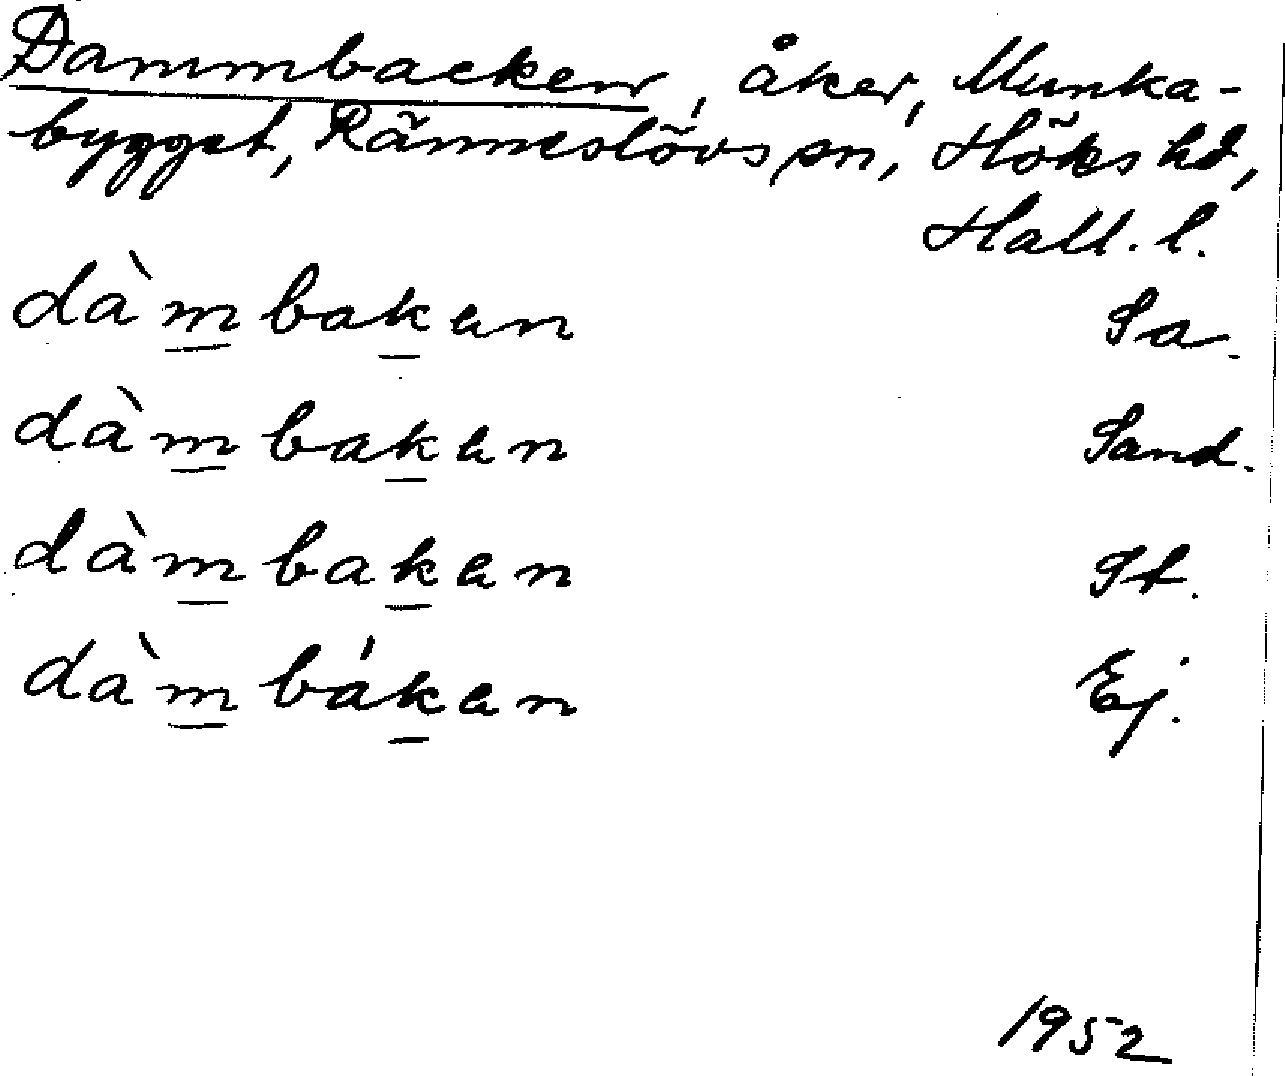 Dammbacken, åker, Munka-
bygget, Ränneslövs sn, Höks hd,
Hall. l.
dàmbakan Sa.
dàmbakan Sand.
dàmbakan St.
dàmbákan Ej.
1952